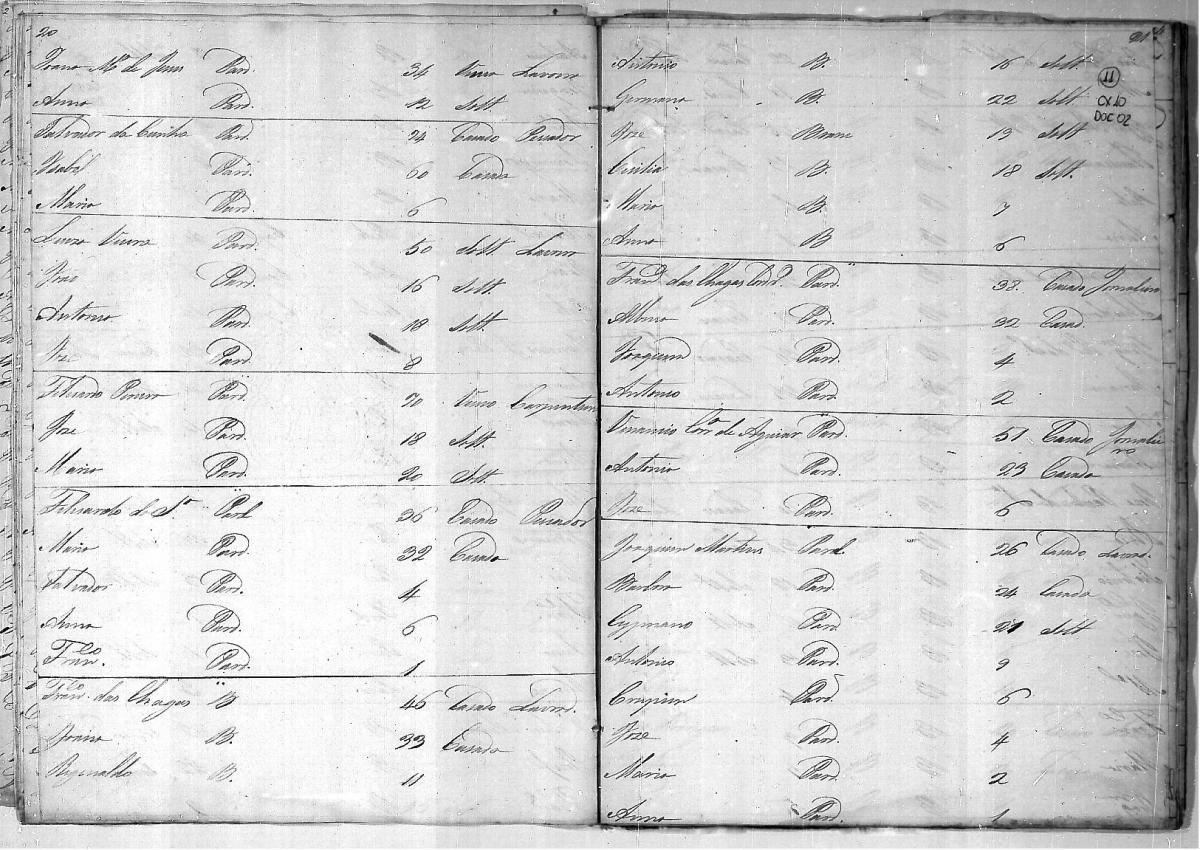 20
Joana Mª de Jesus Pard. 34 Viuva Lavora
Anna Pard. 12 Solt
Salvador da Cunha Pard. 74 Casado Pescador
Isabel Pard. 60 Casada
Maria Pard. 6
Luiza Vieira Pard. 50 Solt Lavora
Pard. 16 Solt.
Antonio Pard. 18 Solt
Joze Pard. 8
Pard. 70 Viuvo Carpinteiro
Joze Pard. 18 Solt.
Maria Pard. 20 Solt
de Sª Pard 36 Casado Pescador
Maria Pard. 32 Casada
Salvador Pard. 4
Anna Pard. 6
Franco. Pard. 1
Franco. das Chagas B 46 Casado Lavrd.
Joana B. 33 Casada
Reginaldo B. 11
21
11
CX 10
DOC 02
Antonio B. 16 Solt.
Germana B. 22 Solt
Joze Branc 19 Solt
Cicilia B. 18 Solt.
Maria B. 7
Anna B 6
Francº das Chagas Pard. 38. Casado Jornaleiro
Pard. 32 Casad.
Joaquim Pard. 4
Antonio Pard. 2
Venancio Corª de Aguiar Pard. 51 Casado Jornalei
ro
Antonia Pard. 23 Casada
Joze Pard. 6
Joaquim Martins Pard. 26 Casado Lavrd.
Pard. 24 Casada
Cypriano Pard. 21 Solt
Antonio Pard. 9
Crispim Pard. 6
Joze Pard. 4
Maria Pard. 2
Anna Pard. 1